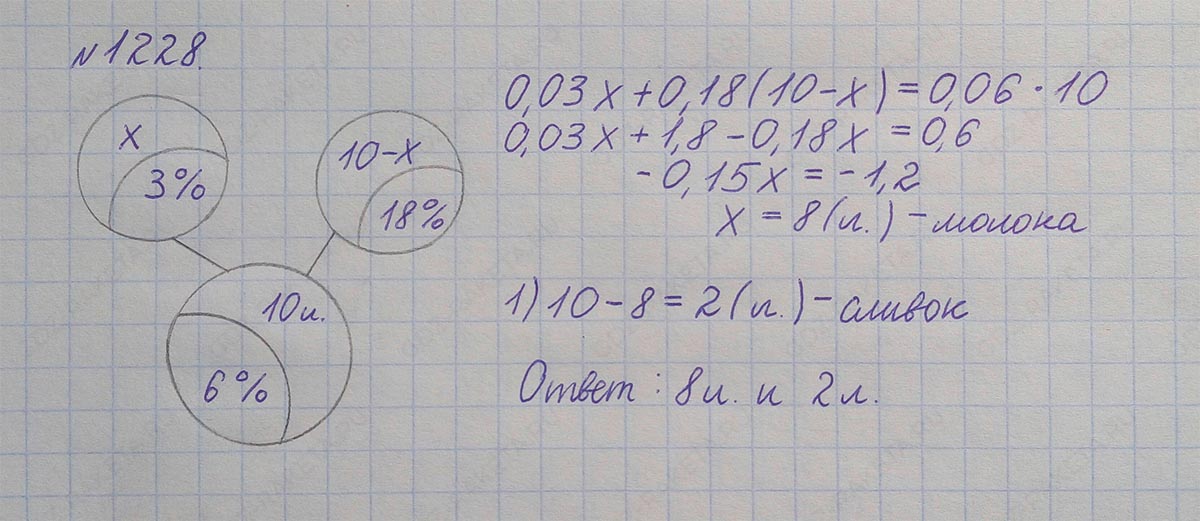 №1228.
x
3%
10-x
18%
10л.
6%
0,03x+0,18(10-x)=0,06·10
0,03x+1,8-0,18x=0,6
-0,15x=-1,2
x=8(л.)-молока
1)10-8=2(л.)-сливок
Ответ: 8л. и 2л.